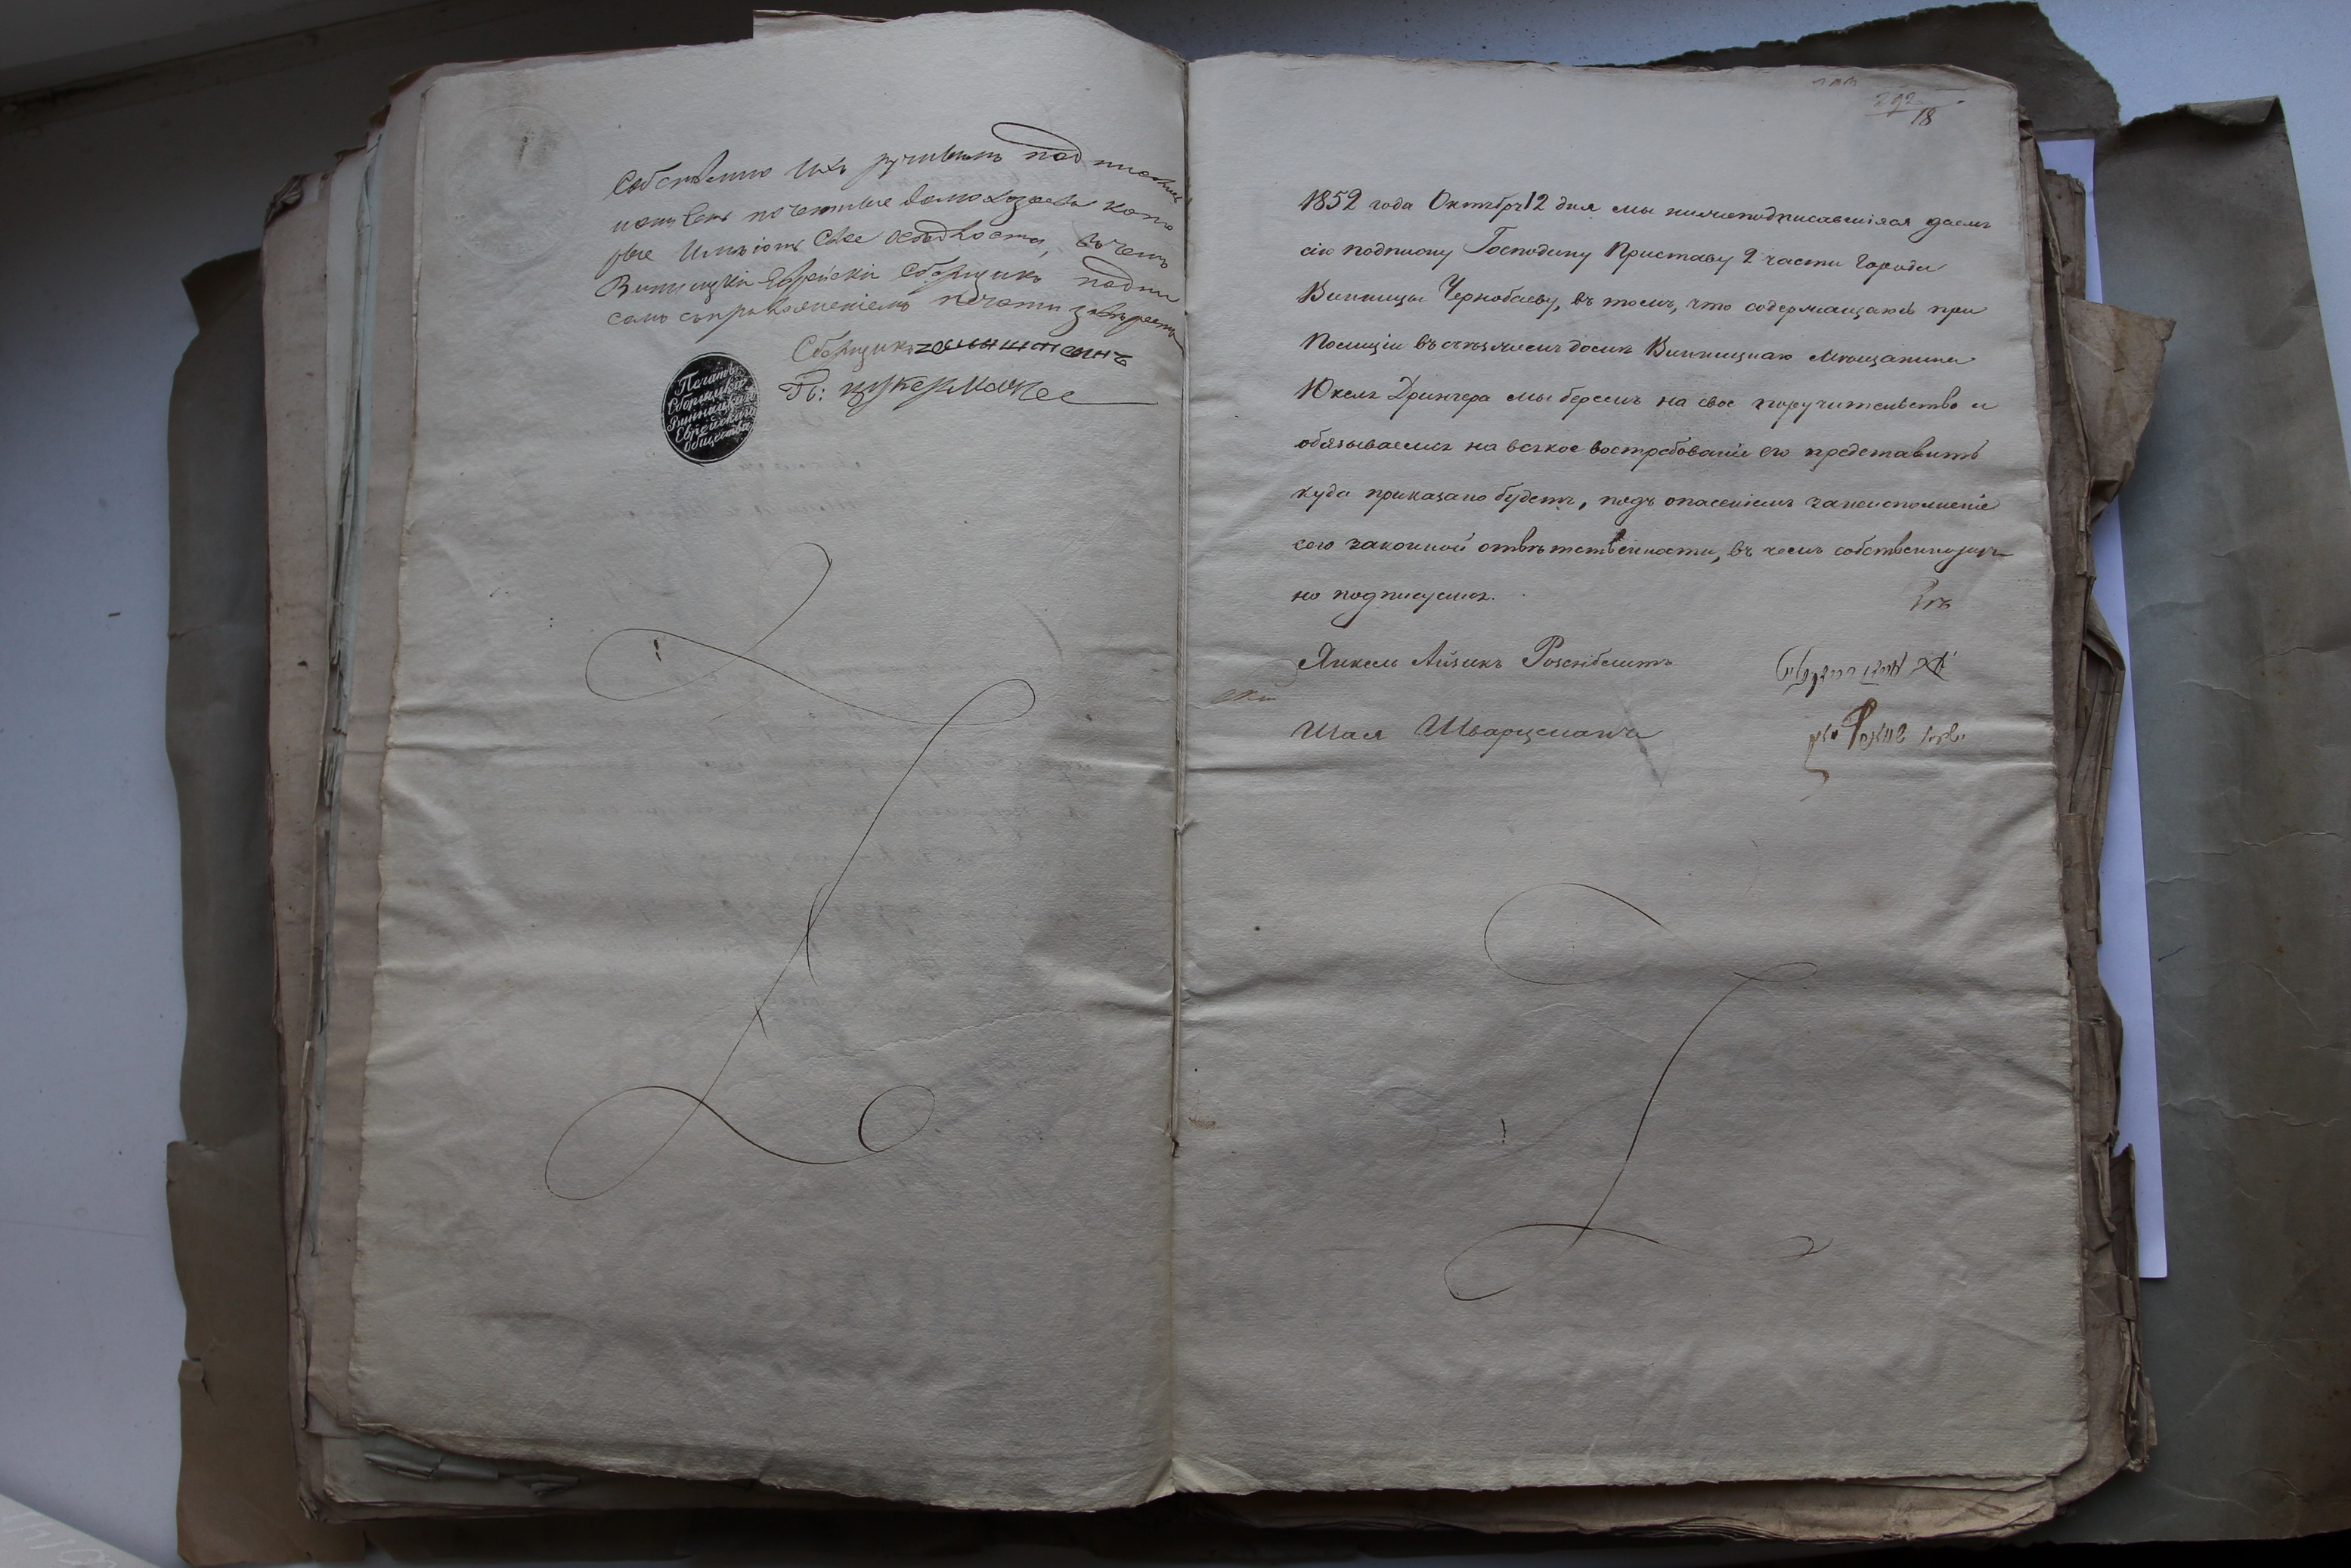 Собствѣнно ихъ ручнымъ подписомъ
почетные домохозяева кото
рые имѣютъ свое осѣдлости, въ чемъ
Винницкій Еврейскій Сборщикъ подпи
сомъ съ приложеніемъ печати завѣряетъ
Сборщикъ
Гб: Цукерманъ
Печать
Сборщика
Винницкаго
Еврейскаго
Общества
292
18
1852 года Октября 12 дня мы нижеподписавшіяся даемъ
сію подписку Господину Приставу 2 части Города
Винницы Чернобаеву, въ томъ, что содержащагось при
Полиціи въ съѣзжемъ домѣ Винницкаго Мѣщанина
Юкеля Дрингера мы беремъ на свое поручительство и
обязываемся на всякое востребованіе его представить
куда приказано будетъ, подъ опасеніемъ за неисполненіе
сего законной отвѣтственности, въ чемъ собственноруч-
но подписуемся.
Янкель Айзикъ Розенблитъ
Шая Шварцманъ